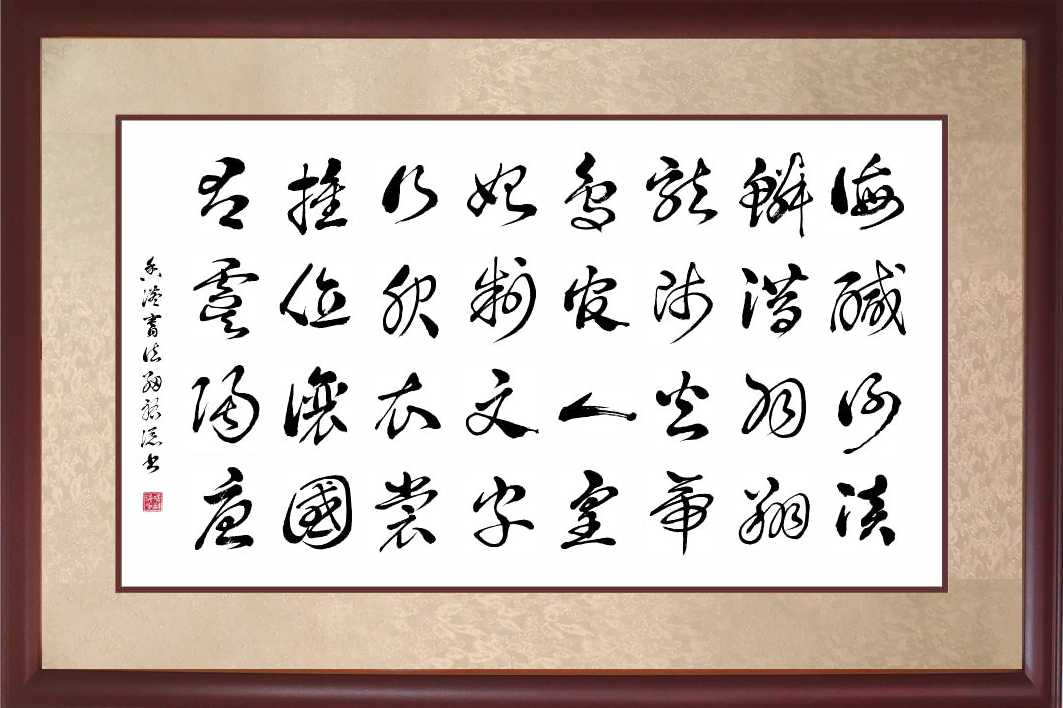 海鹹河淡
鱗潛羽翔
龍師火帝
鳥官人皇
始制文字
乃服衣裳
推位讓國
有虞陶唐